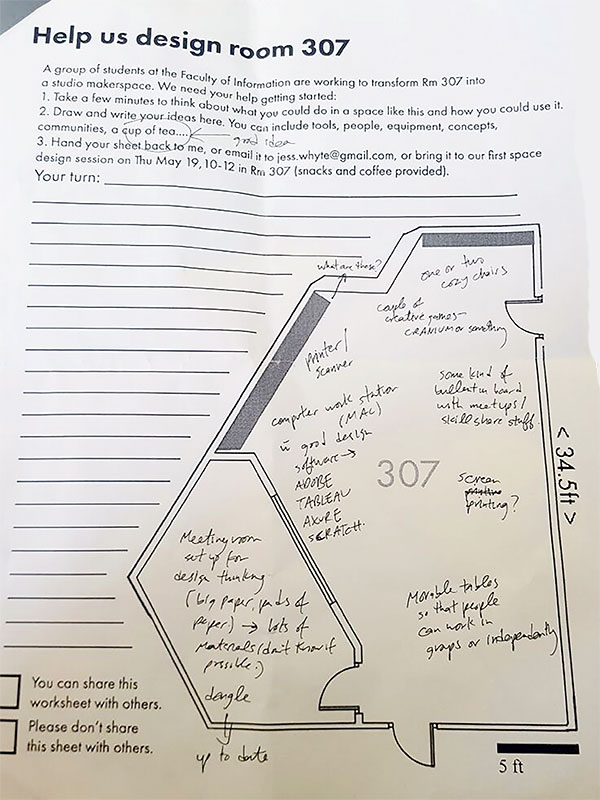 Help us design room 307
A group of students at the Faculty of Information are working to transform Rm 307 into
a studio makerspace. We need your help getting started:
1. Take a few minutes to think about what you could do in a space like this and how you could use it.
2. Draw and write your ideas here. You can include tools, people, equipment, concepts,
communities, a cup of tea....
good idea
3. Hand your sheet back to me, or email it to jess.whyte@gmail.com, or bring it to our first space
design session on Thu May 19, 10-12 in Rm 307 (snacks and coffee provided).
Your turn:
what are these?
one or two
cozy chairs
couple of
creative games-
CRANIUM or something
printer/
scanner
some kind of
bulletin board
with meetups/
skill share stuff.
computer work station
(MAC)
w good design
software →
ADOBE
TABLEAU
AXURE
SCRATCH.
307
< 34.5ft >
screen
printing?
Meeting room
set up for
design thinking
(big paper, pads of
paper) → lots of
materials (don't know if
possible.)
dongle
up to date
Movable tables
so that people
can work in
groups or independently
You can share this
worksheet with others.
Please don't share
this sheet with others.
5 ft